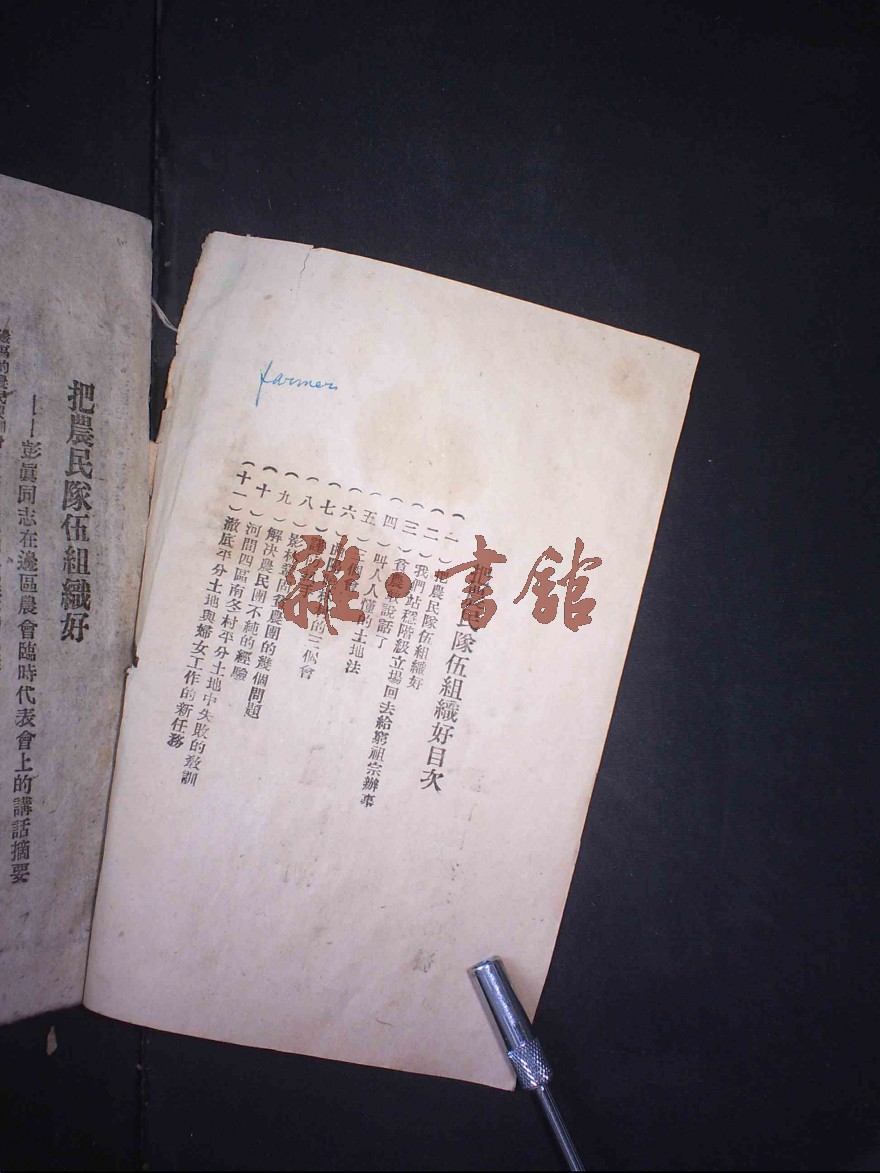 farmers
把農民隊伍組織好目次
（一）把農民隊伍組織好
（二）我們站穩階級立場回去給窮祖宗辦事
（三）貧農說話了
（四）叫人人懂的土地法
（五）三個會
（六）的三個會
（七）
（八）影林鞏固貧農團的幾個問題
（九）解決農民團不純的經驗
（十）河間四區南冬村平分土地中失敗的敎訓
（十一）徹底平分土地與婦女工作的新任務
把農民隊伍組織好
——彭眞同志在邊區農會臨時代表會上的講話摘要
雜·書館